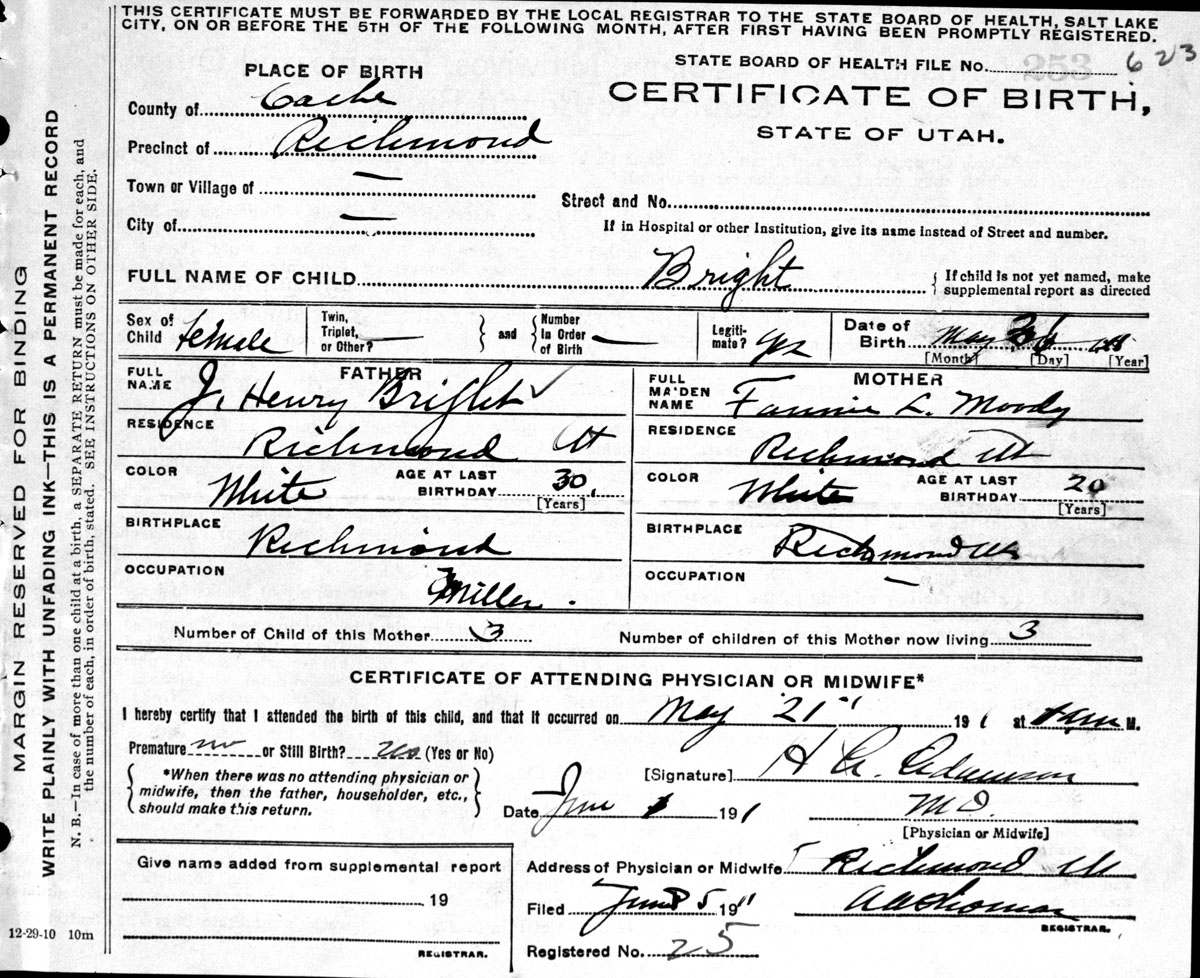 THIS CERTIFICATE MUST BE FORWARDED BY THE LOCAL REGISTRAR TO THE STATE BOARD OF HEALTH, SALT LAKE
CITY, ON OR BEFORE THE 5TH OF THE FOLLOWING MONTH, AFTER FIRST HAVING BEEN PROMPTLY REGISTERED.
MARGIN RESERVED FOR BINDING
WRITE PLAINLY WITH UNFADING INK—THIS IS A PERMANENT RECORD
N. B.—In case of more than one child at a birth, a SEPARATE RETURN must be made for each, and
the number of each, in order of birth, stated. SEE INSTRUCTIONS ON OTHER SIDE.
PLACE OF BIRTH
County of Cache
Precinct of Richmond
Town or Village of —
City of —
STATE BOARD OF HEALTH FILE No. 623
CERTIFICATE OF BIRTH,
STATE OF UTAH.
Street and No.
If in Hospital or other Institution, give its name instead of Street and number.
FULL NAME OF CHILD Bright { If child is not yet named, make
supplemental report as directed
Sex of
Child female
Twin,
Triplet,
or Other? —
} and {
Number
In Order
of Birth —
Legiti-
mate? yes
Date of
Birth May
[Month] [Day] [Year]
FATHER
FULL
NAME J. Henry Bright
RESIDENCE
Richmond Ut
COLOR White AGE AT LAST
BIRTHDAY 30
[Years]
BIRTHPLACE
Richmond
OCCUPATION
Miller.
MOTHER
FULL
MAIDEN
NAME Fannie L. Moody
RESIDENCE
Richmond Ut
COLOR White AGE AT LAST
BIRTHDAY 20
[Years]
BIRTHPLACE
Richmond Ut
OCCUPATION —
Number of Child of this Mother 3 Number of children of this Mother now living 3
CERTIFICATE OF ATTENDING PHYSICIAN OR MIDWIFE*
I hereby certify that I attended the birth of this child, and that it occurred on May 21" 191 1 at M.
Premature no or Still Birth? no (Yes or No)
{ *When there was no attending physician or
midwife, then the father, householder, etc.,
should make this return. }
[Signature] H. A. Adamson
Date June 1 191 1 M.D.
[Physician or Midwife]
Give name added from supplemental report
19
REGISTRAR.
Address of Physician or Midwife Richmond Ut
Filed June 5 1911
REGISTRAR.
Registered No. 25
12-29-10 10m